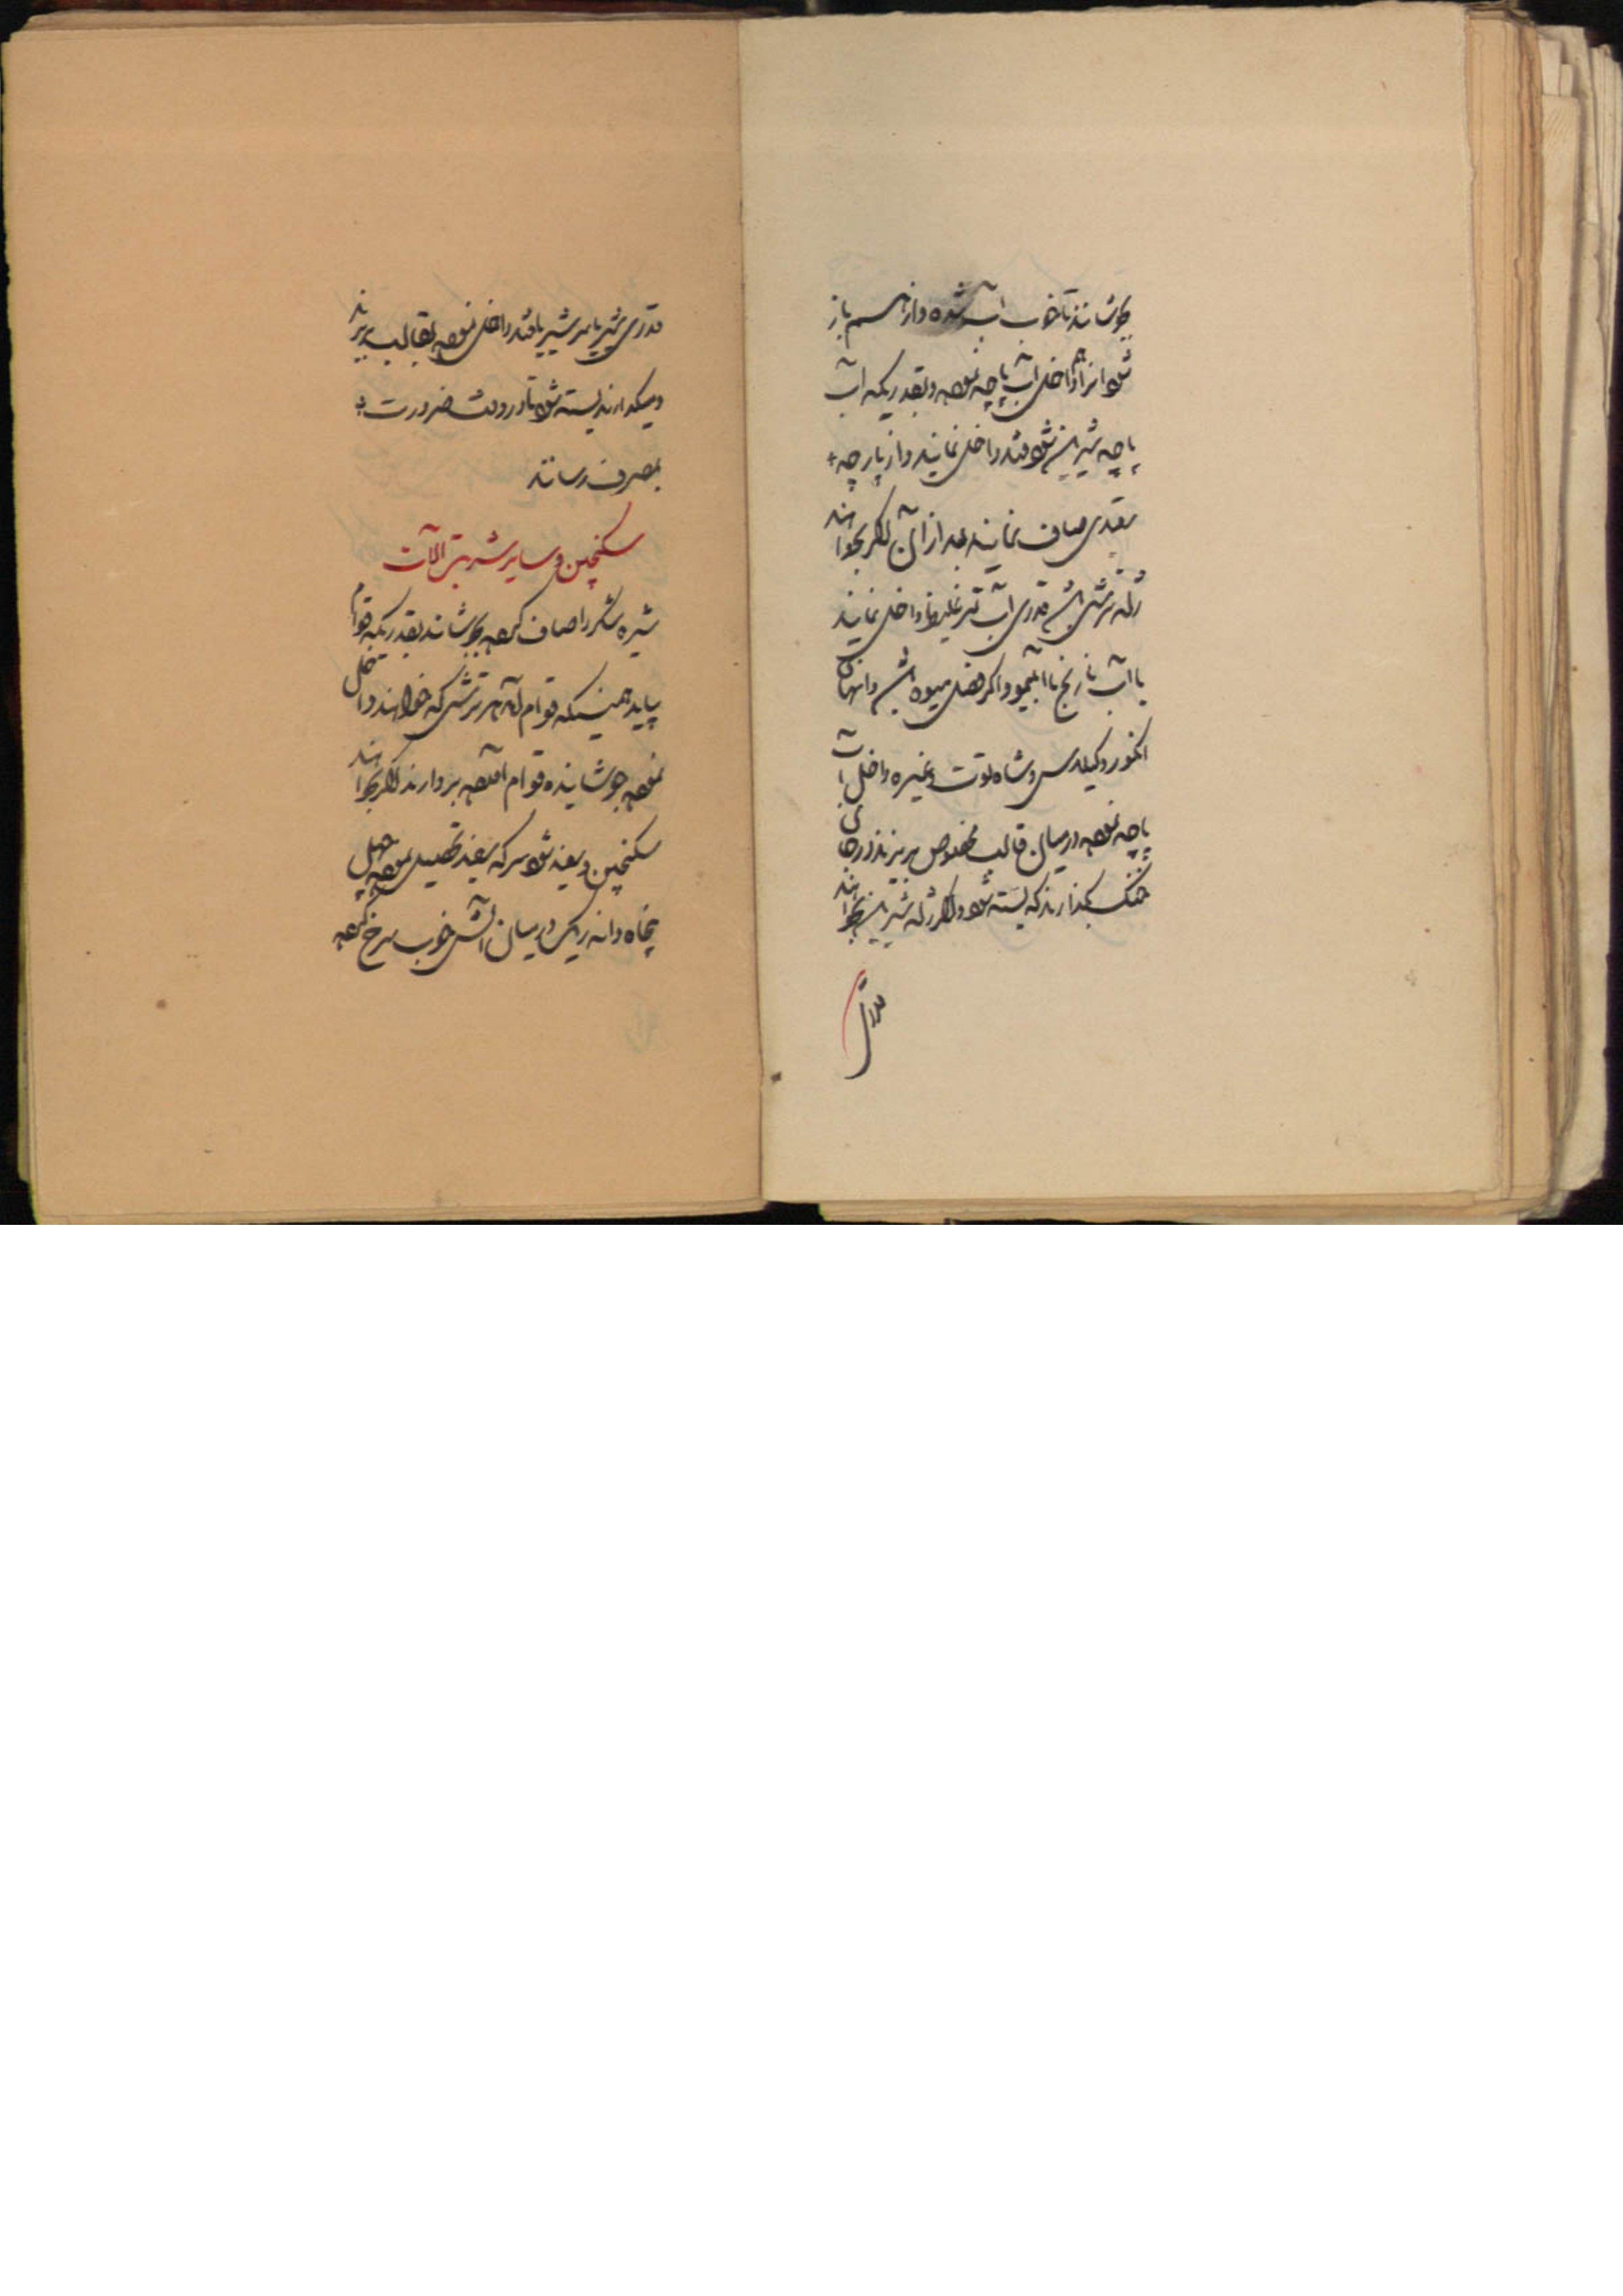 بجوشانند تا خوب آب شده و از هم باز
شود انرا داخل آب پاچه نموده و بقدریکه آب
پاچه شیرین شود قند داخل نمایند و از پارچه
سفیدی صاف نمایند بعد از آن اگر بخواهند
ژله ترشی باشد قدری آب داخل نمایند
یا آب نارنج یا آبلیمو و اگر فصل میوه باشد دانهای
انگور و گیلاس و شاه توت و غیره داخل آب
پاچه نموده در میان قالب مخصوص بریزند در جای
خنک بگذارند که بسته شود و اگر ژله شیرین بخواهند
قدری
قدری شیر یا سر شیر با قند داخل نموده بقالب بریزند
و میگذارند بسته شود تا در وقت ضرورت
بمصرف رسانند
سکنجبین و سایر شربت آلات
شیره شکر را صاف کرده بجوشانند بقدریکه قوام
بیاید همینکه قوام آمد هر ترشی که خواهند داخل
نموده جوشانیده قوام آمده بردارند اگر بخواهند
سکنجبین سفید شود سرکه سفید تحصیل نموده چهل
پنجاه دانه ریگ در میان آتش خوب سرخ کرده